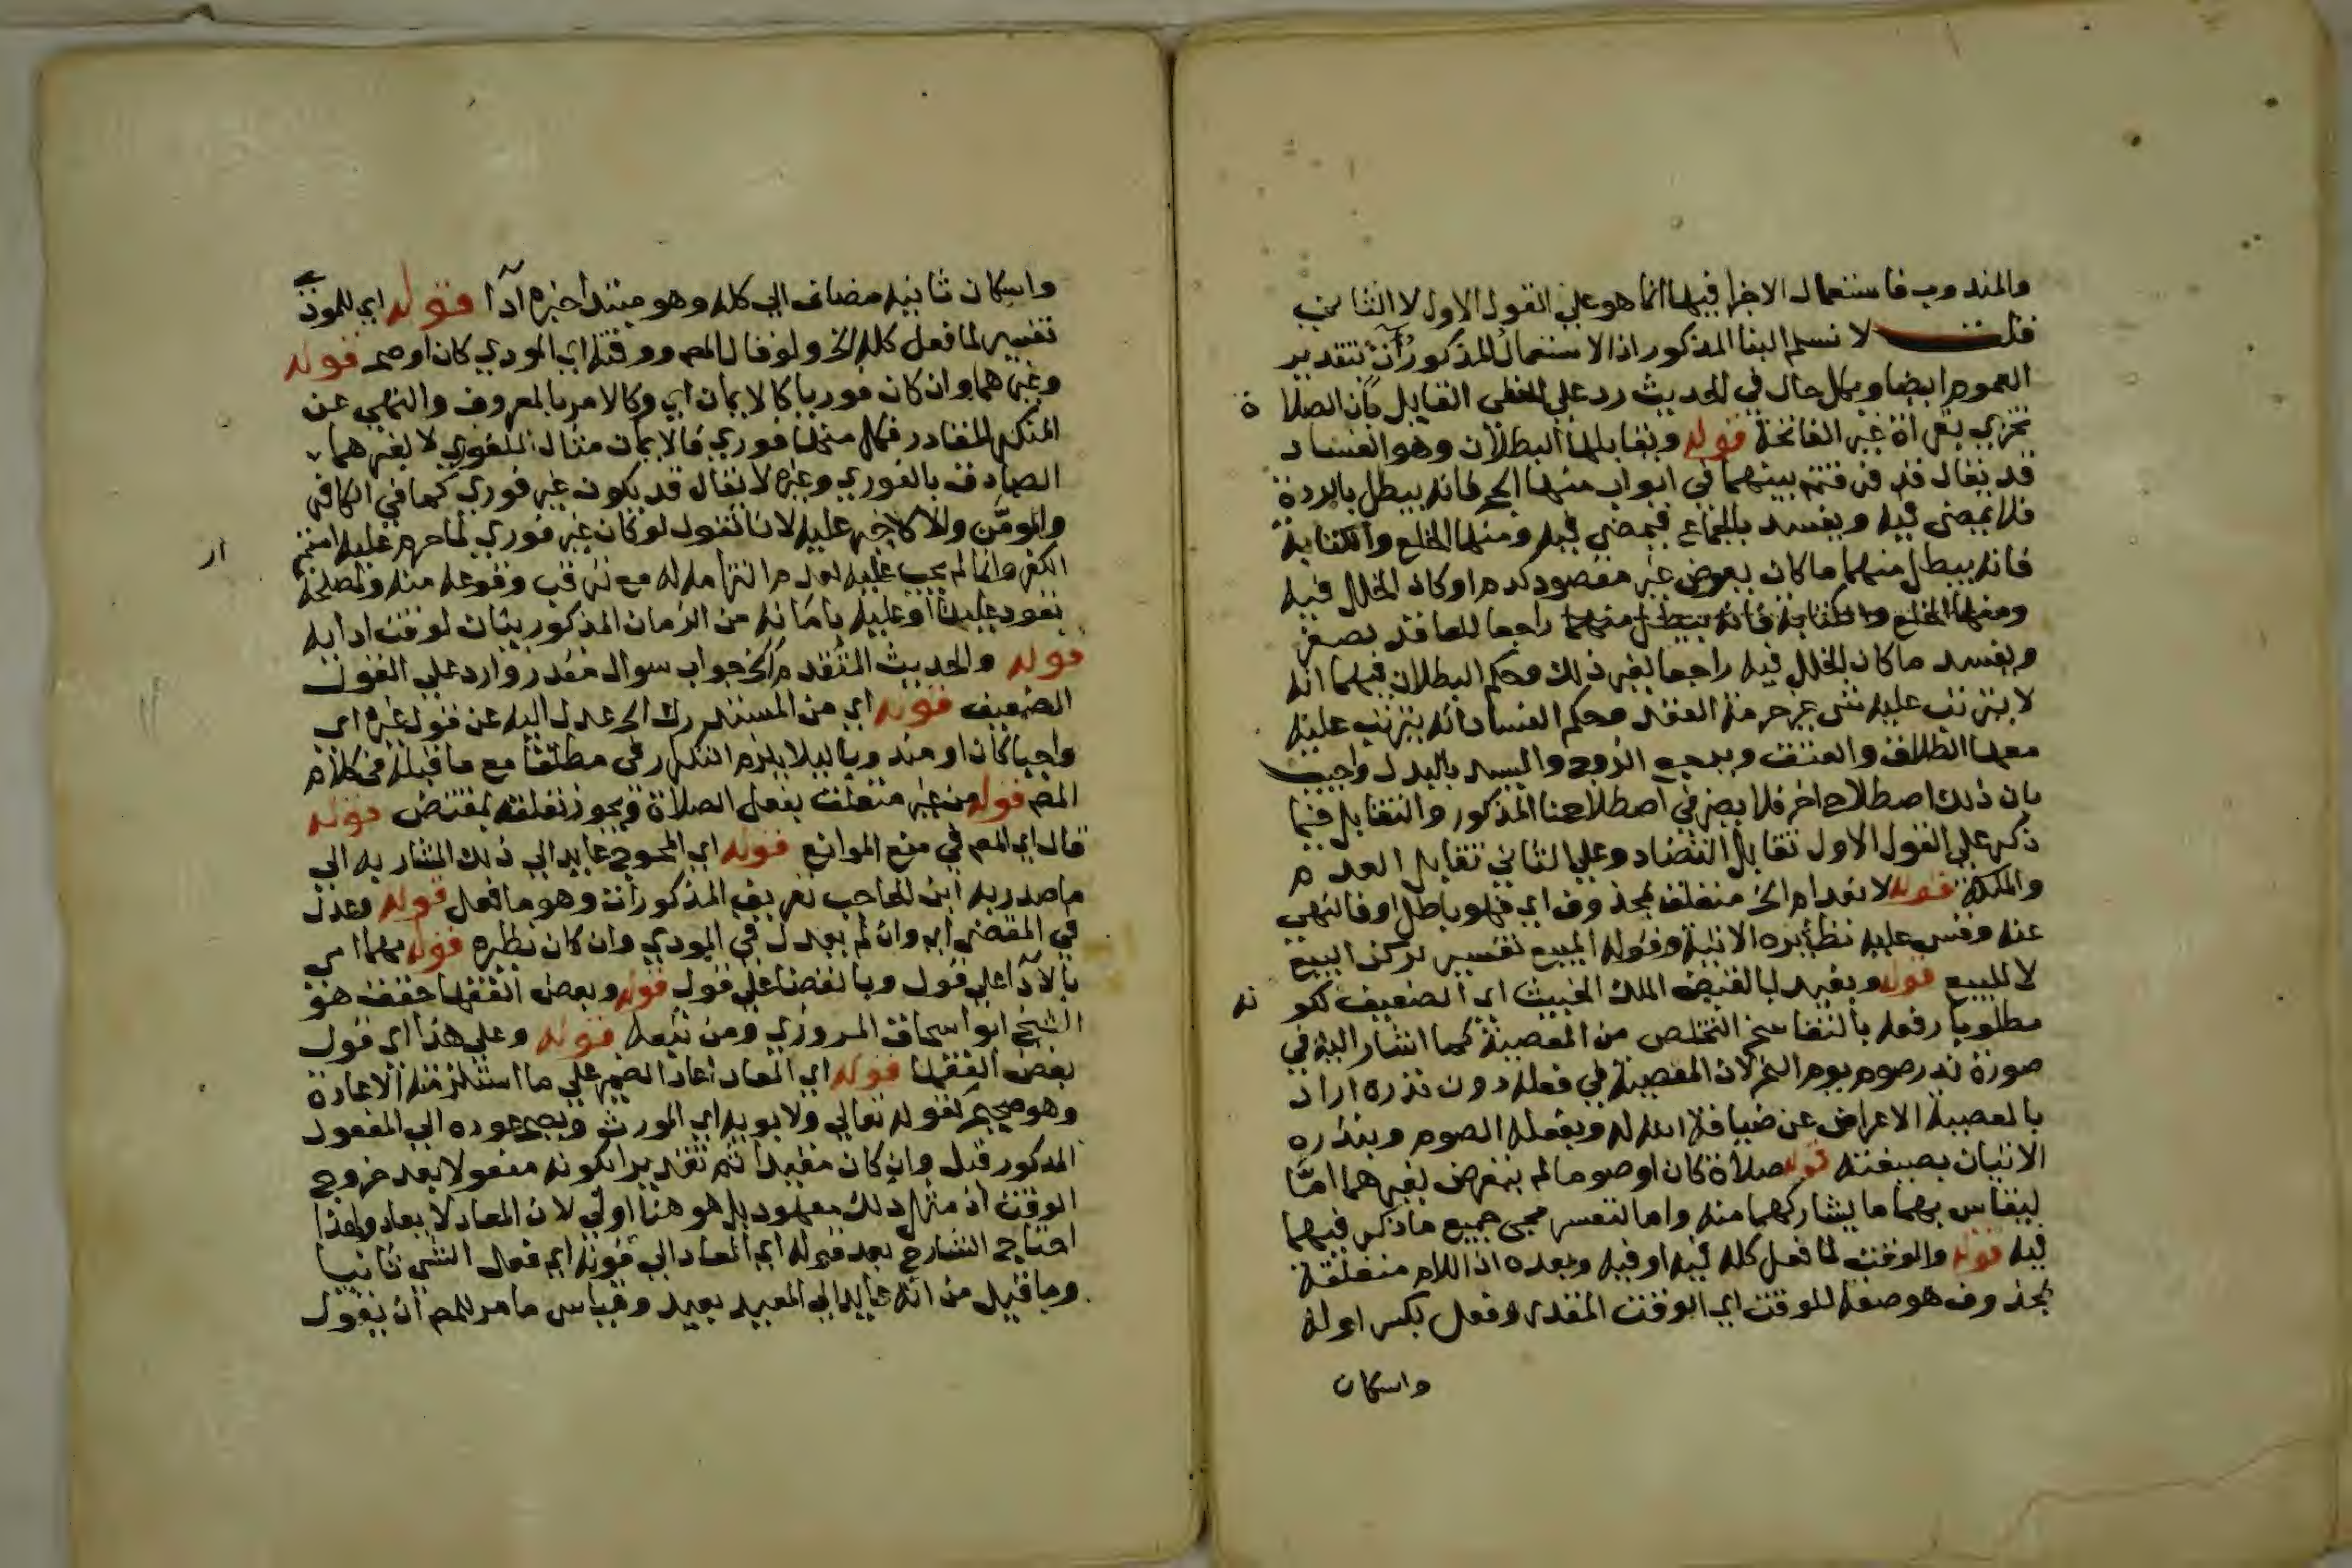 والمندوب فاستعمال الاجزا فيها انما هو علي القول الاول لا الثاني
قلت لا نسلم البنا المذكور اذ الاستعمال المذكور آت بتقدير
العموم ايضا وبكل حال في الحديث رد علي الحنفي القايل بان الصلاة
تجزي بقراة غير الفاتحة قوله ويقابلها البطلان وهو الفساد
قد يقال قد فرقتم بينهما في ابواب منها الحج فانه يبطل بالردة
فلا يمضي فيه ويفسد بالجماع فيمضي فيه ومنها الخلع والكتابة
فانه يبطل منهما ما كان بعوض غير مقصود كدم او كان الخلل فيه
ومنها الخلع والكتابة فانه يبطل منهما راجعا للعاقد كصغر
ويفسد ما كان الخلل فيه راجعا لغير ذلك وحكم البطلان فيهما انه
لا يترتب عليه شي غير حرمة العقد وحكم الفساد انه يترتب عليه
معها الطلاق والعتق ويرجع الزوج والسيد بالبدل واجيب
بان ذلك اصطلاح اخر فلا يضر في اصطلاحنا المذكور والتقابل فيما
ذكر علي القول الاول تقابل التضاد وعلي الثاني تقابل العدم
والملكة قوله لا نعدام الخ متعلق بمحذوف اي فهو باطل او فالنهي
عنه وقس عليه نظايره الاتية وقوله المبيع تفسير لركن البيع
لا للبيع قوله ويفيد بالقبض الملك الخبيث اي الضعيف لكونه
مطلوبا رفعه بالتفاسخ للتخلص من المعصية كما اشار اليه في
صورة نذر صوم يوم النحر لان المعصية في فعله دون نذره اراد
بالمعصية الاعراض عن ضيافة الله له وبفعله الصوم وبنذره
الاتيان بصيغته قوله صلاة كان او صوما لم يتعرض لغيرهما اما
ليقاس بهما ما يشاركهما منه واما لتعسر مجي جميع ما ذكر فيهما
فيه قوله والوقت لما فعل كله فيه او فيه وبعده اذ اللام متعلقة
بمحذوف هو صفة للوقت اي الوقت المقدر وفعل بكسر اوله
واسكان
واسكان ثانيه مضاف الي كله وهو مبتدا خبره آدا قوله اي للمودي
تفسير لما فعل كله الخ ولو قال المصم ووقته اي المودي كان اوضح قوله
وغيرهما وان كان فوريا كالايمان اي وكالامر بالمعروف والنهي عن
المنكر للقادر فكل منهما فوري فالايمان مثال للفوري لا لغيرهما
الصادق بالفوري وغيره لا يقال قد يكون غير فوري كما في الكافر
والمومن والا لاجبر عليه لانا نقول لو كان غير فوري لما حرم عليه استمرار
الكفر وانما لم يجب عليه لعدم التزامه له مع ترقب وقوعه منه ولمصلحة
تعود علينا او عليه بامانه من الزمان المذكور بيان لوقت ادايه
قوله والحديث المتقدم الخ جواب سوال مقدر وارد علي القول
الضعيف قوله اي من المستدرك الخ عدل اليه عن قول غيره اي
واجبا كان او مندوبا ليلا يلزم التكرر في مطلقا مع ما قبله في كلام
المصم قوله من غير متعلق بفعل الصلاة ويجوز تعلقه بمقتض قوله
قال اي المصم في منع الموانع قوله اي المحوج عايد الي ذلك المشار به الي
ما صدر به ابن الحاجب تعريف المذكورات وهو ما فعل قوله وعدل
في المقضي اي وان لم يعدل في المودي وان كان نظيره قوله مهما امر
بالادا علي قول وبالقضا علي قول قوله وبعض الفقها حقق هو
الشيخ ابو اسحاق المروزي ومن تبعه قوله وعلي هذا اي قول
بعض الفقها قوله اي المعاد اعاد الضمير علي ما استلزمته الاعادة
وهو صحيح كقوله تعالي ولابويه اي المورث ويصح عوده الي المفعول
المذكور قبل وان كان مقيدا ثم تقديرا لكونه مفعولا بعد خروج
الوقت اذ مثل ذلك معهود بل هو هنا اولي لان المعاد لا يعاد ولهذا
احتاج الشارح بعد قوله اي المعاد الي قوله اي فعل الشي ثانيا
وما قيل من انه عايد الي المعيد بعيد وقياس ما مر للمصم ان يقول